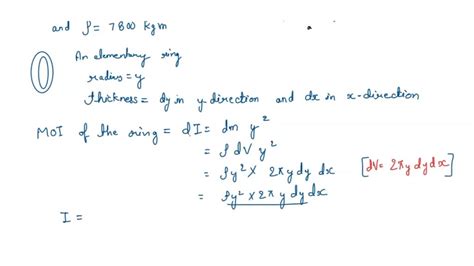 and ρ = 7800 kgm
An elementary ring
radius = y
thickness = dy in y-direction and dx in x-direction
MOI of the ring = dI = dm y²
= ρ dV y²
= ρy² × 2π y dy dx [dV = 2π y dy dx]
= ρy² × 2π y dy dx
I =